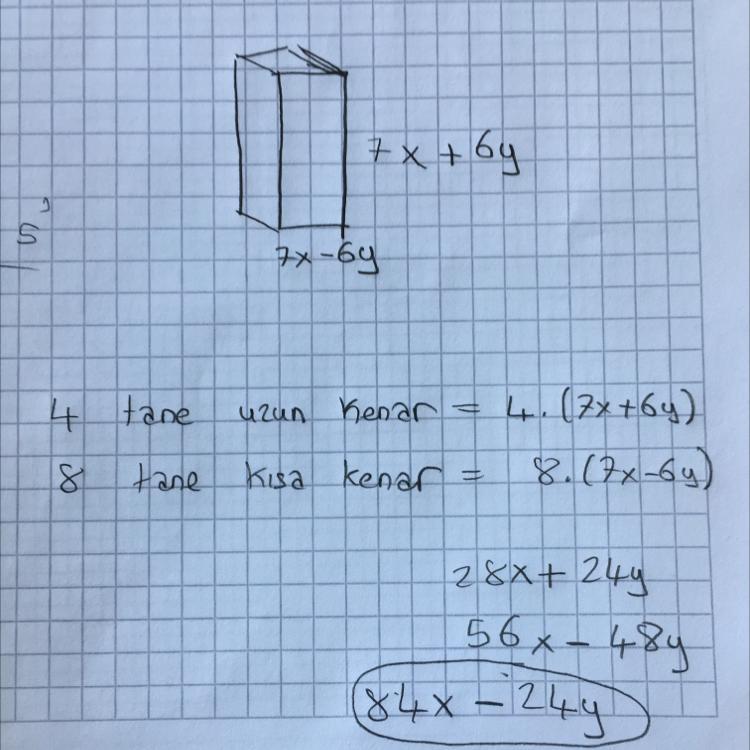 7x + 6y
5
7x - 6y
4 tane uzun kenar = 4.(7x+6y)
8 tane kısa kenar = 8.(7x-6y)
28x + 24y
56x - 48y
84x - 24y